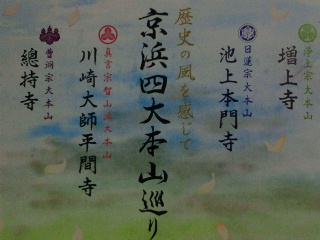 浄土宗大本山
増上寺
日蓮宗大本山
池上本門寺
歴史の風を感じて
京浜四大本山巡り
真言宗智山派大本山
川崎大師平間寺
曹洞宗大本山
總持寺